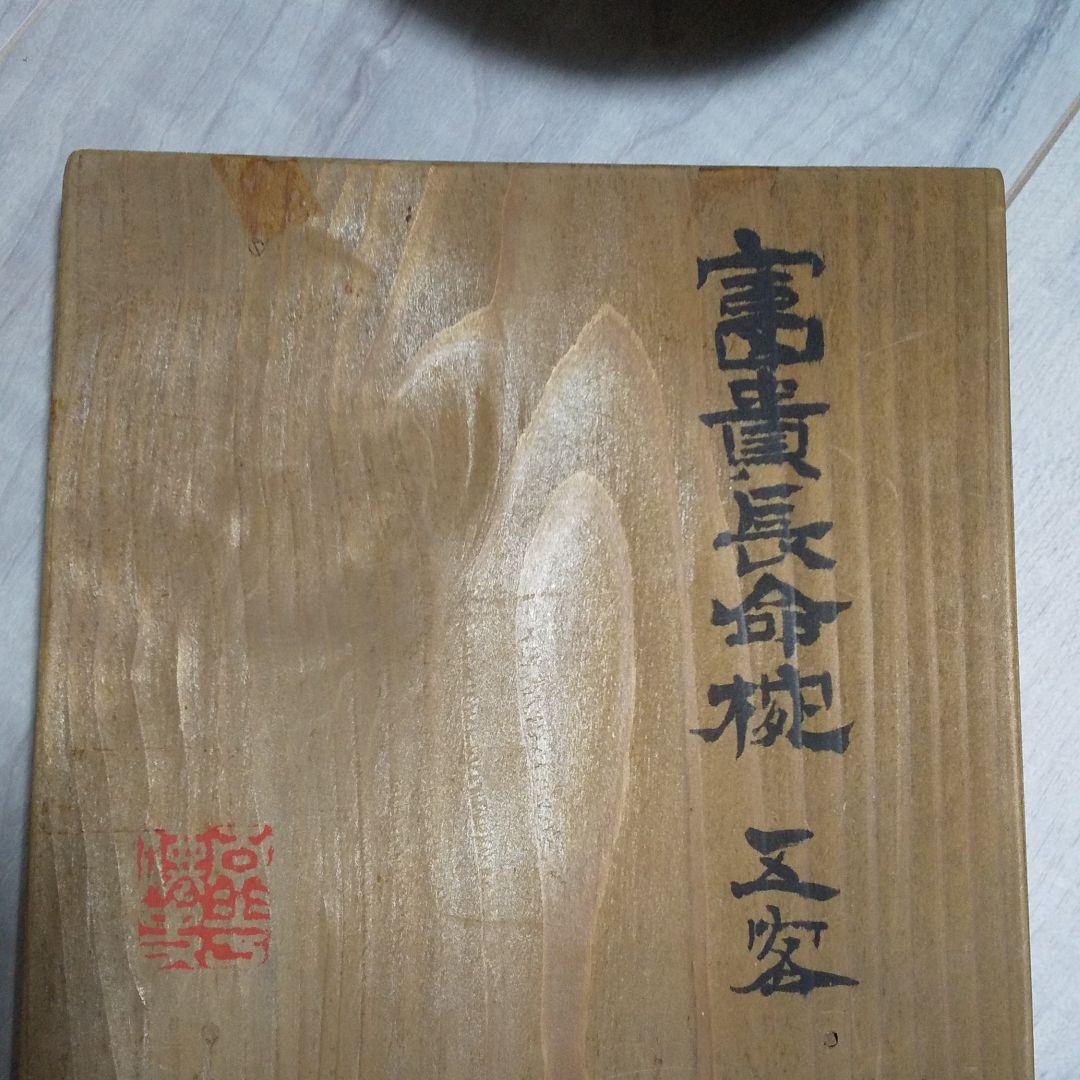 富貴長命椀 五客